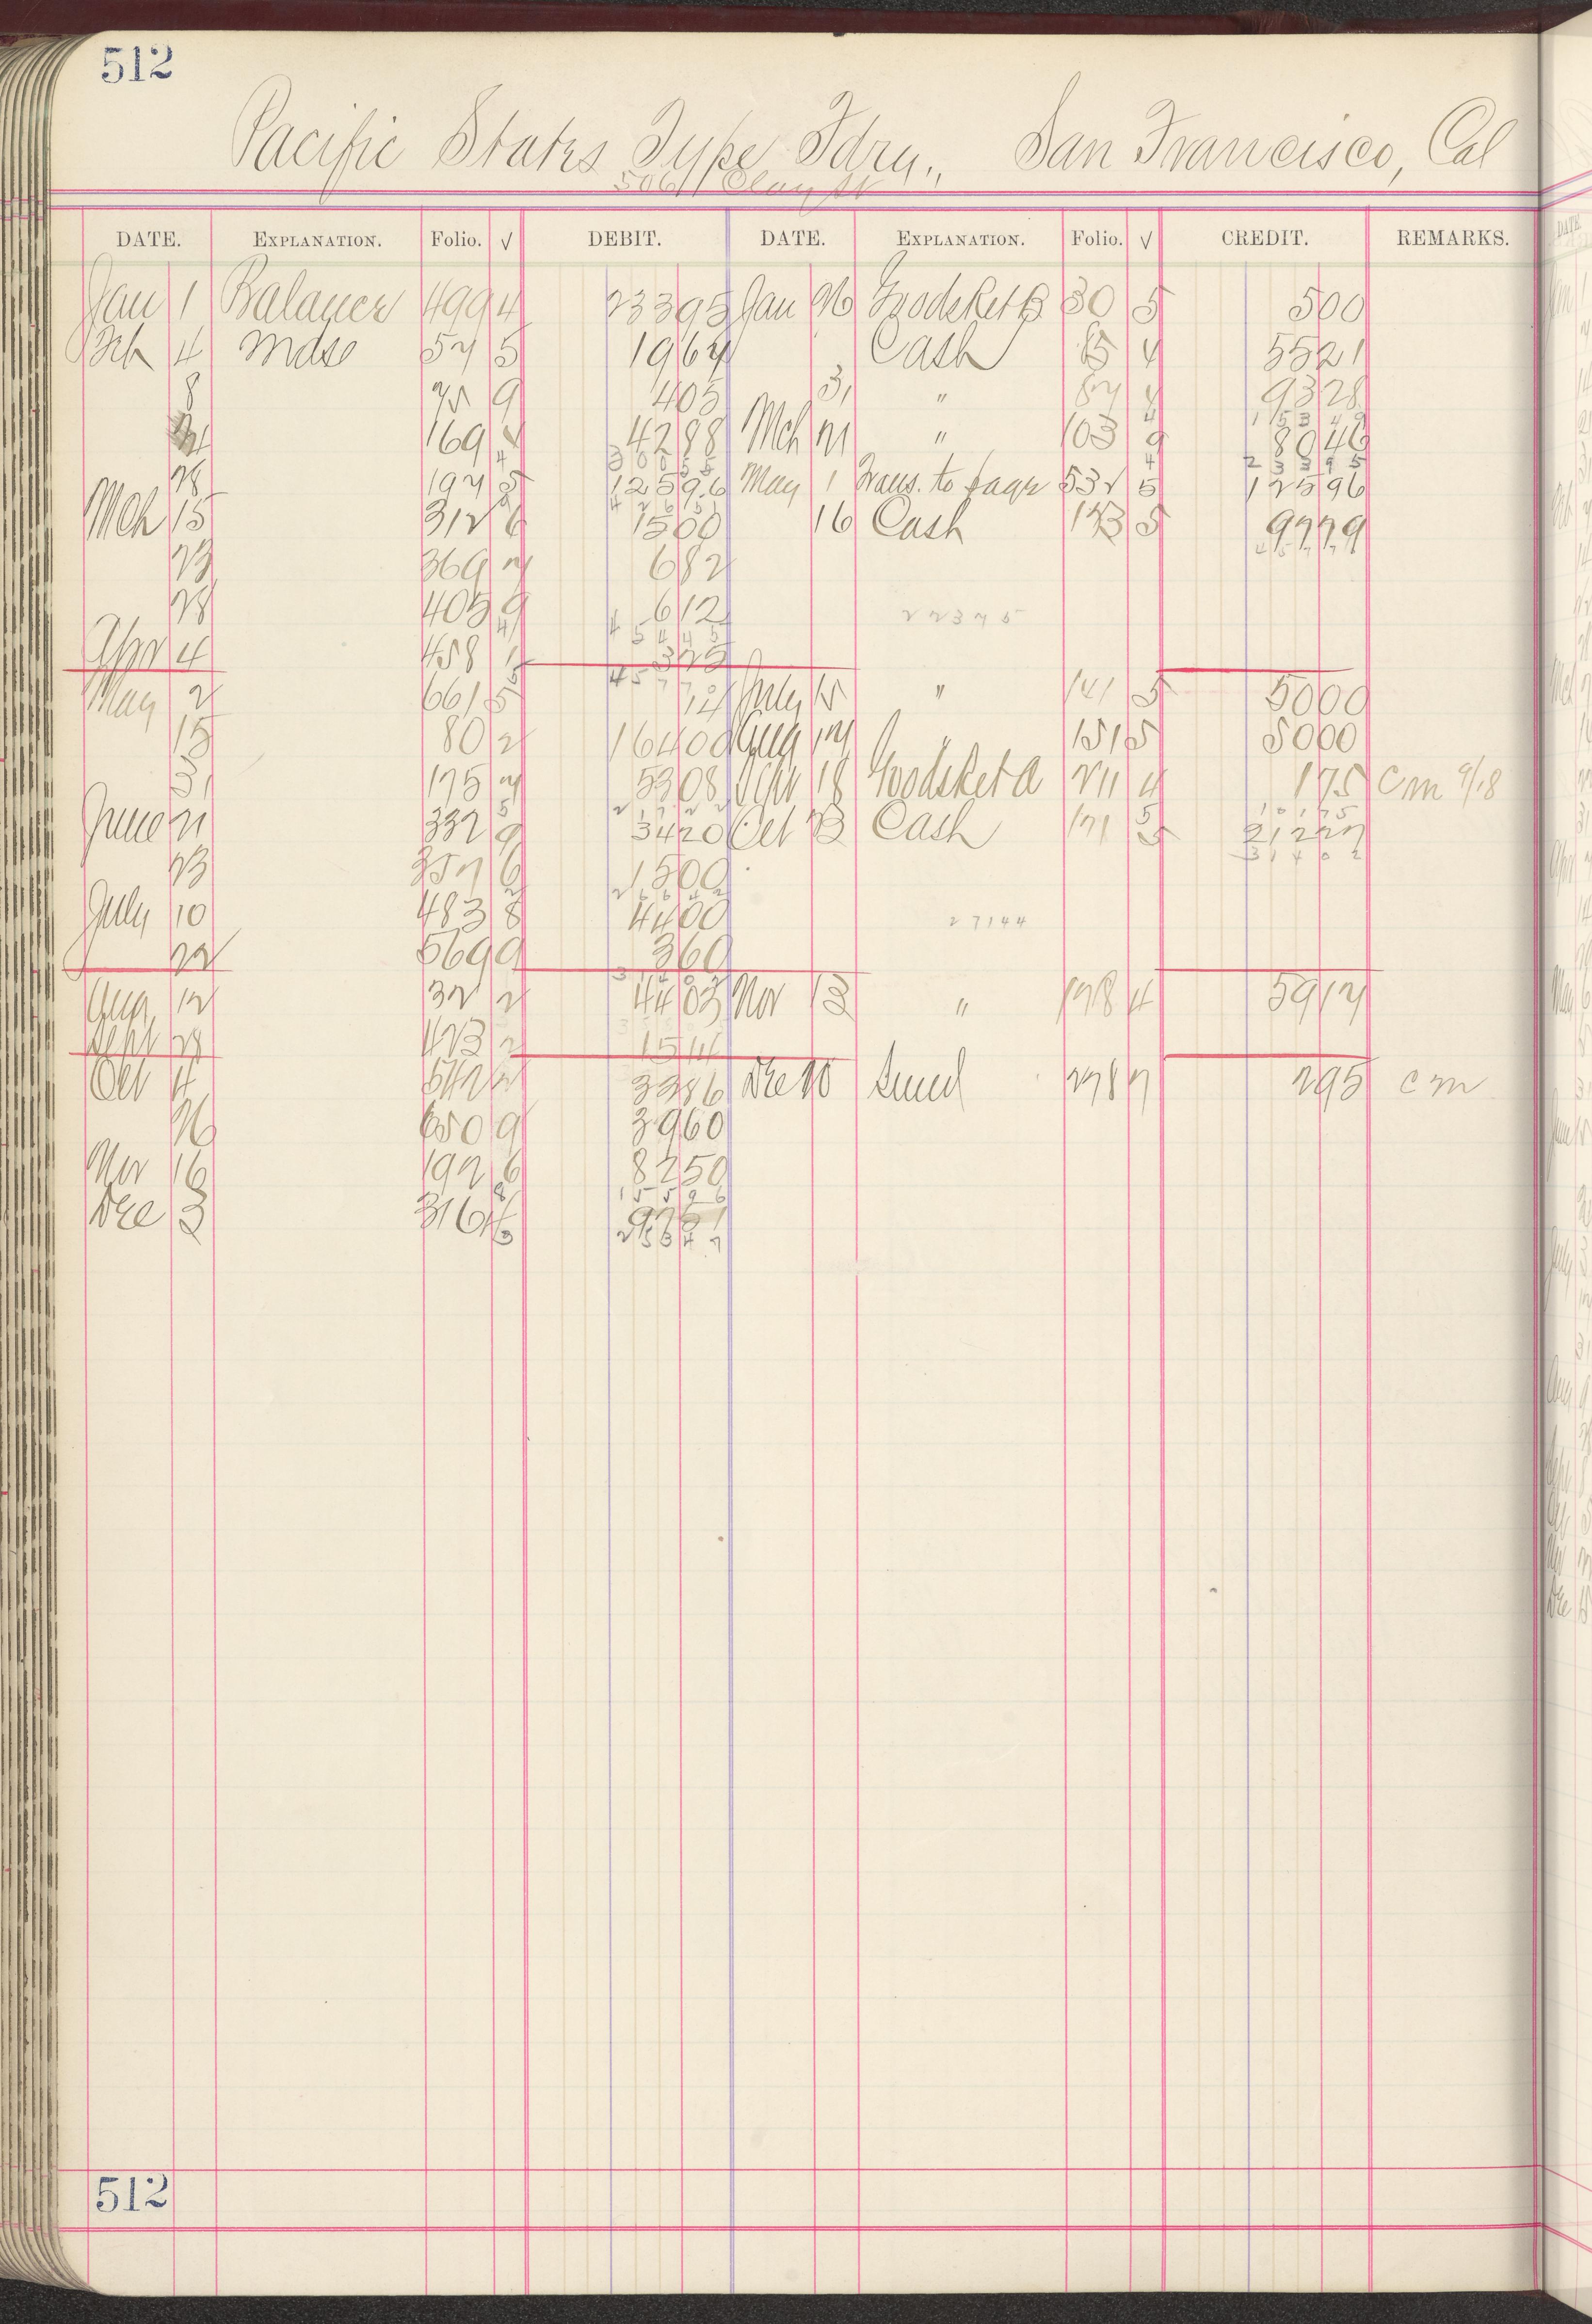 512
Pacific States Type Fdry., San Francisco, Cal
506 Clay St
DATE. EXPLANATION. Folio. √ DEBIT. DATE. EXPLANATION. Folio. √ CREDIT. REMARKS.
Jan 1 Balance 499 4 23395 Jan 26 Goods Ret B 30 5 500
Feb 4 Mdse 57 5 1967 Cash 4 5521
8 9 405 31 " 87 9328
169 4288 Mch 21 " 103 9 8046
28 197 5 12596 May 1 Trans. to page 532 5 12596
Mch 15 312 6 1500 16 Cash 123 5 9779
23 369 7 682
28 405 9 612
22375
Apr 4 458 1 375
May 2 661 5 July 15 " 141 5 5000
15 80 2 16400 Aug 27 " 151 5 5000
31 175 7 5308 Sept 18 Goods Ret A 211 4 175 Cm 9/18
June 21 332 9 3420 Oct 23 Cash 171 5 21227
31402
23 357 6 1500
July 10 483 8 4400
27144
22 569 9 360
Aug 12 32 2 4403 Nov 13 " 178 4 5917
Sept 28 1514
Oct 4 542 3386 Dec 10 278 7 295 cm
26 650 9 3960
Nov 16 197 6 8250
Dec 3 316
512